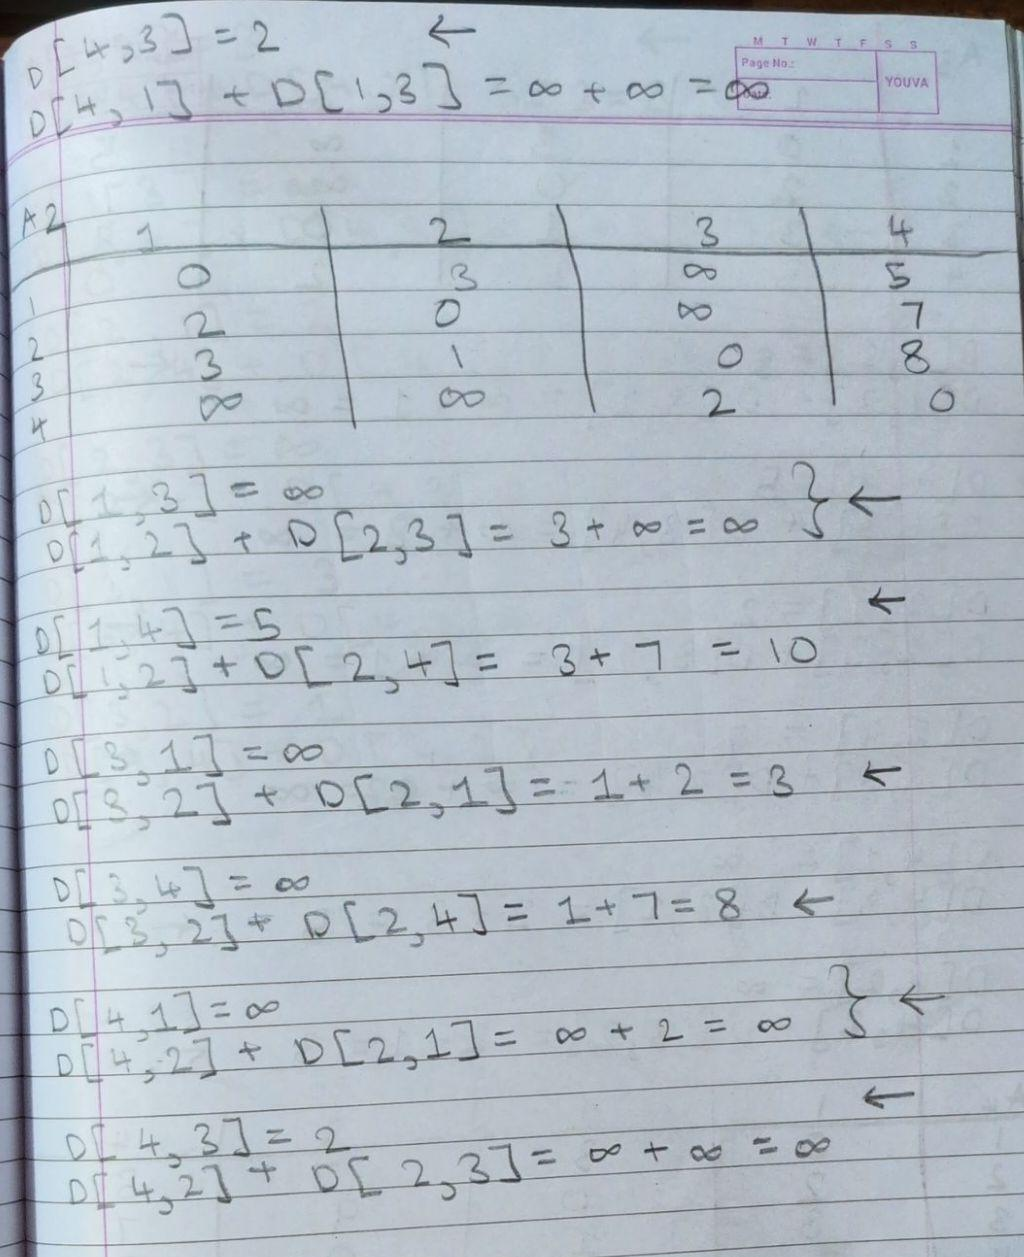 D[4,3] = 2 ←
M T W T F S S
Page No.:
YOUVA
D[4,1] + D[1,3] = ∞ + ∞ = ∞
A2 1 2 3 4
1 0 3 ∞ 5
2 2 0 ∞ 7
3 3 1 0 8
4 ∞ ∞ 2 0
D[1,3] = ∞
D[1,2] + D[2,3] = 3 + ∞ = ∞ } ←
D[1,4] = 5 ←
D[1,2] + D[2,4] = 3 + 7 = 10
D[3,1] = ∞
D[3,2] + D[2,1] = 1 + 2 = 3 ←
D[3,4] = ∞
D[3,2] + D[2,4] = 1 + 7 = 8 ←
D[4,1] = ∞
D[4,2] + D[2,1] = ∞ + 2 = ∞ } ←
D[4,3] = 2 ←
D[4,2] + D[2,3] = ∞ + ∞ = ∞